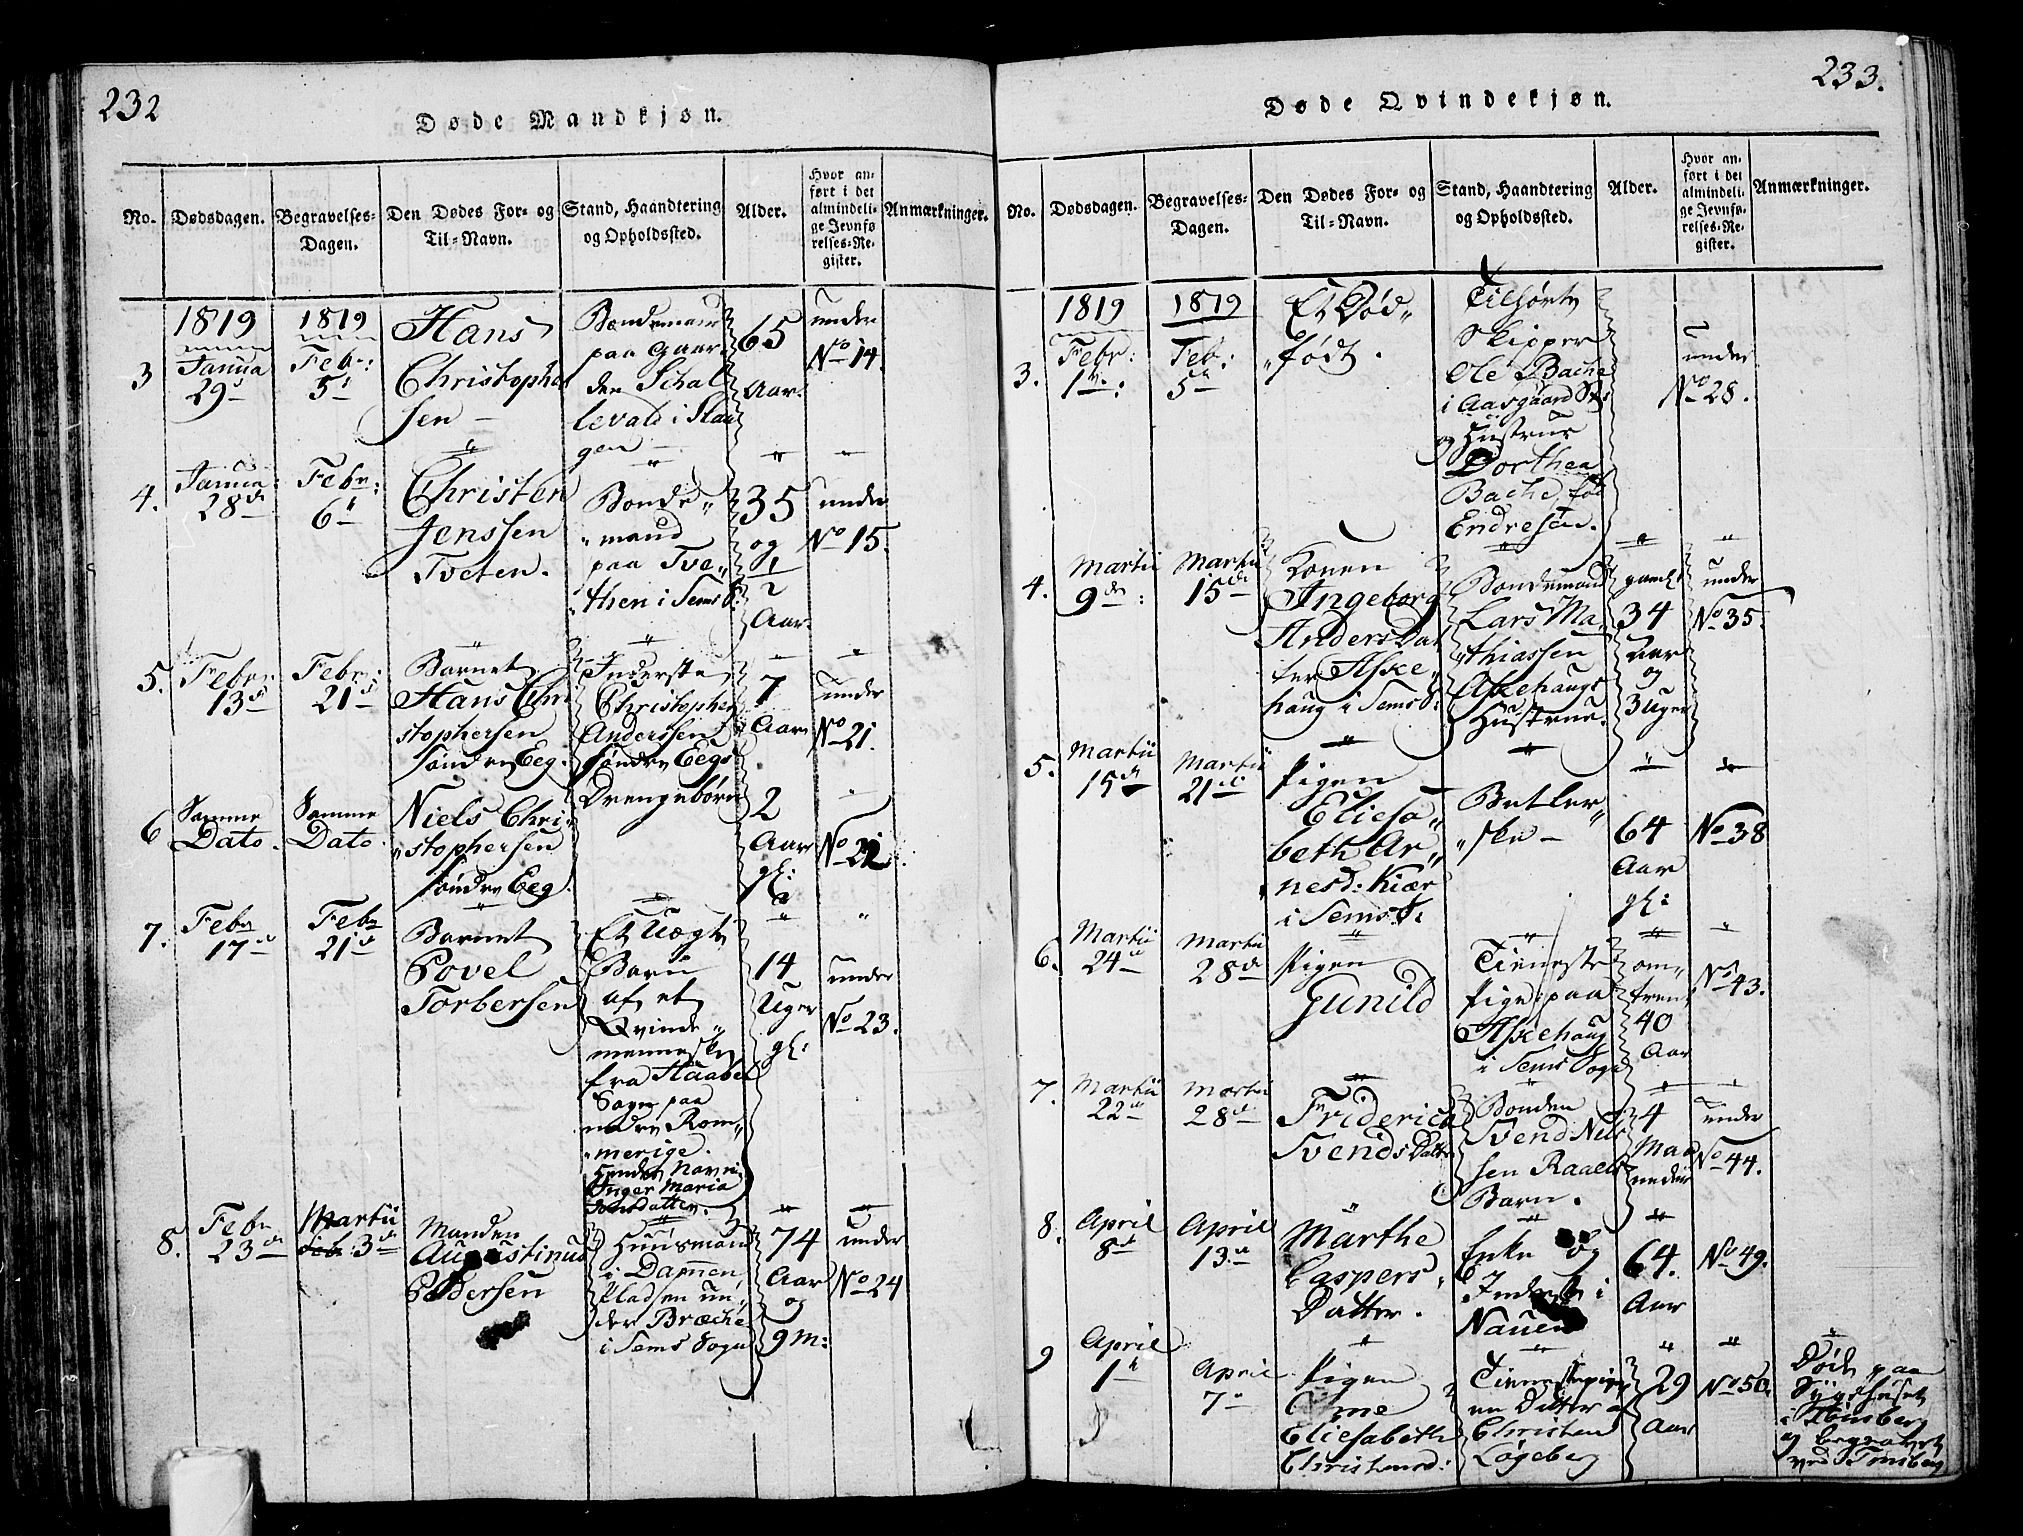 232
Døde Mandkjøn.
No.
Dødsdagen.
Begravelses-
Dagen.
Den Dødes For- og
Til-Navn.
Stand, Haandtering
og Opholdssted.
Alder.
Hvor an-
ført i det
almindeli-
ge Jevnfø-
relses-Re-
gister.
Anmærkninger.
3
1819
Janua
29
1819
Febr:
5
Hans
Christopher
sen
Bondemand
paa Gaar
den Schal
levald i Slaa
gen
65
Aar.
under
No 14.
4.
Janua:
28de
Febr:
6
Christen
Jenssen
Tveten.
Bonde„
„mand
paa Tve„
„then i Sems S:
35
og
1
2
Aar.
under
No 15.
5.
Febr:
13de
Febr:
21de
Barnet
Hans Chri
stophersen
Søndre Eeg.
Inderste
Christopher
Anderssen
Søndre Eegs
7
Aar
under
No 21.
6
Samme
Dato.
Samme
Dato.
Niels Chri„
„stophersen
Søndre Eeg.
Drengebørn
2
Aar
gl:
No 22.
7.
Febr
17de
Febr
21de
Barnet
Povel
Torbersen
Et Uægte
Barn
af et
Qvinde„
menneske
fra Haabøl
Sogn paa
nedre Rom„
„merige.
Hendes Navn:
Inger Maria
Jonsdatter.
14
Uger
gl:
under
No 23.
8.
Febr
23de
Martii
3de
Manden
Augustinus
Pedersen
Huusmand
i Dammen
Pladsen un„
der Bræche
i Sems Sogn
74
Aar
og
9 M:
under
No 24
233.
Døde Qvindekjøn.
No.
Dødsdagen.
Begravelses-
Dagen.
Den Dødes For- og
Til-Navn.
Stand, Haandtering
og Opholdssted.
Alder.
Hvor an-
ført i det
almindeli-
ge Jevnfø-
relses-Re-
gister.
Anmærkninger.
3.
1819
Febr:
1
1819
Feb:
5
Et Død„
„født.
Tilhørte
Skipper
Ole Bache
i Aasgaard
og Hustrue
Dorthea
Bache, fød
Endresen.
under
No 28.
4.
Martii
9de:
Martii
15de
Konen
Ingeborg
Anders Dat
ter Aske„
haug i Sems S:
Bondemand
Lars Ma„
„thiassen
Askehaugs
Hustrue.
34
Aar
og
3 Uger
under
No 35.
5.
Martii
15de
Martii
21de
Pigen
Eliesa„
beth Ar„
nesd: Kiær
i Sems S:
Betler„
„ske
64
Aar
gl:
No 38
6.
Martii
24de
Martii
28de
Pigen
Gunild
Tieneste
Pige paa
Askehaug
i Sems Sogn
om„
tren
40
Aar
No 43.
7.
Martii
22de
Martii
28de
Friderica
Svends Datter
Bonden
Svend Nils
sen Raaels
Barn.
4
Maa
neder
under
No 44.
8.
April
8de
April
13de
Marthe
Caspers
Datter.
Enke og
Inderste i
Nauen
64.
Aar
No 49.
9
April
1
April
7
Pigen
Ane
Eliesabeth
Christensd:
Tienestepige
en Datter af
Christen
Løgeberg
29
Aar
No 50.
Døde paa
Sygehuset
i Tønsberg
og begravet
ved Tønsberg